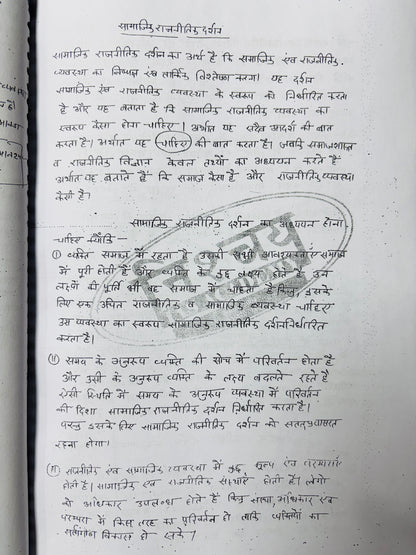 सामाजिक राजनीतिक दर्शन
सामाजिक राजनीतिक दर्शन का अर्थ है कि सामाजिक एंव राजनीतिक
व्यवस्था का निष्पक्ष एंव तार्किक विश्लेषण करना। यह दर्शन
सामाजिक एंव राजनीतिक व्यवस्था के स्वरूप को निर्धारित करता
है और यह बताता है कि सामाजिक राजनीतिक व्यवस्था का
स्वरूप कैसा होना चाहिए। अर्थात यह सदैव आदर्श की बात
करता है। अर्थात यह चाहिए की बात करता है। जबकि समाजशास्त्र
व राजनीतिक विज्ञान केवल तथ्यों का अध्ययन करते हैं
अर्थात यह बताते हैं कि समाज कैसा है और राजनीतिक व्यवस्था
कैसी है।
सामाजिक राजनीतिक दर्शन का अध्ययन होना
चाहिए क्योंकि —
① व्यक्ति समाज में रहता है उसकी सभी आवश्यकताएं समाज
में पूरी होती है और व्यक्ति के कुछ लक्ष्य होते हैं उन
लक्ष्यों की पूर्ति भी वह समाज में चाहता है किन्तु इसके
लिए एक उचित राजनीतिक व सामाजिक व्यवस्था चाहिए
उस व्यवस्था का स्वरूप सामाजिक राजनीतिक दर्शन निर्धारित
करता है।
(ii) समय के अनुरूप व्यक्ति की सोच में परिवर्तन होता है
और उसी के अनुरूप व्यक्ति के लक्ष्य बदलते रहते है
ऐसी स्थिति में समय के अनुरूप व्यवस्था में परिवर्तन
की दिशा सामाजिक राजनीतिक दर्शन निर्धारित करता है।
परन्तु इसके लिए सामाजिक राजनीतिक दर्शन को सतत
रहना होगा।
(iii) राजनीतिक एंव सामाजिक व्यवस्था में कुछ मूल्य एंव परम्पराएं
होती है। सामाजिक एंव राजनीतिक संस्थाएं होती है। लोगो
को अधिकार उपलब्ध होते है किन्तु सत्ता, अधिकार एंव
परम्परा में किस तरह का परिवर्तन हो ताकि व्यक्तियों का
सर्वांगीण विकास हो सके।
निश्चय